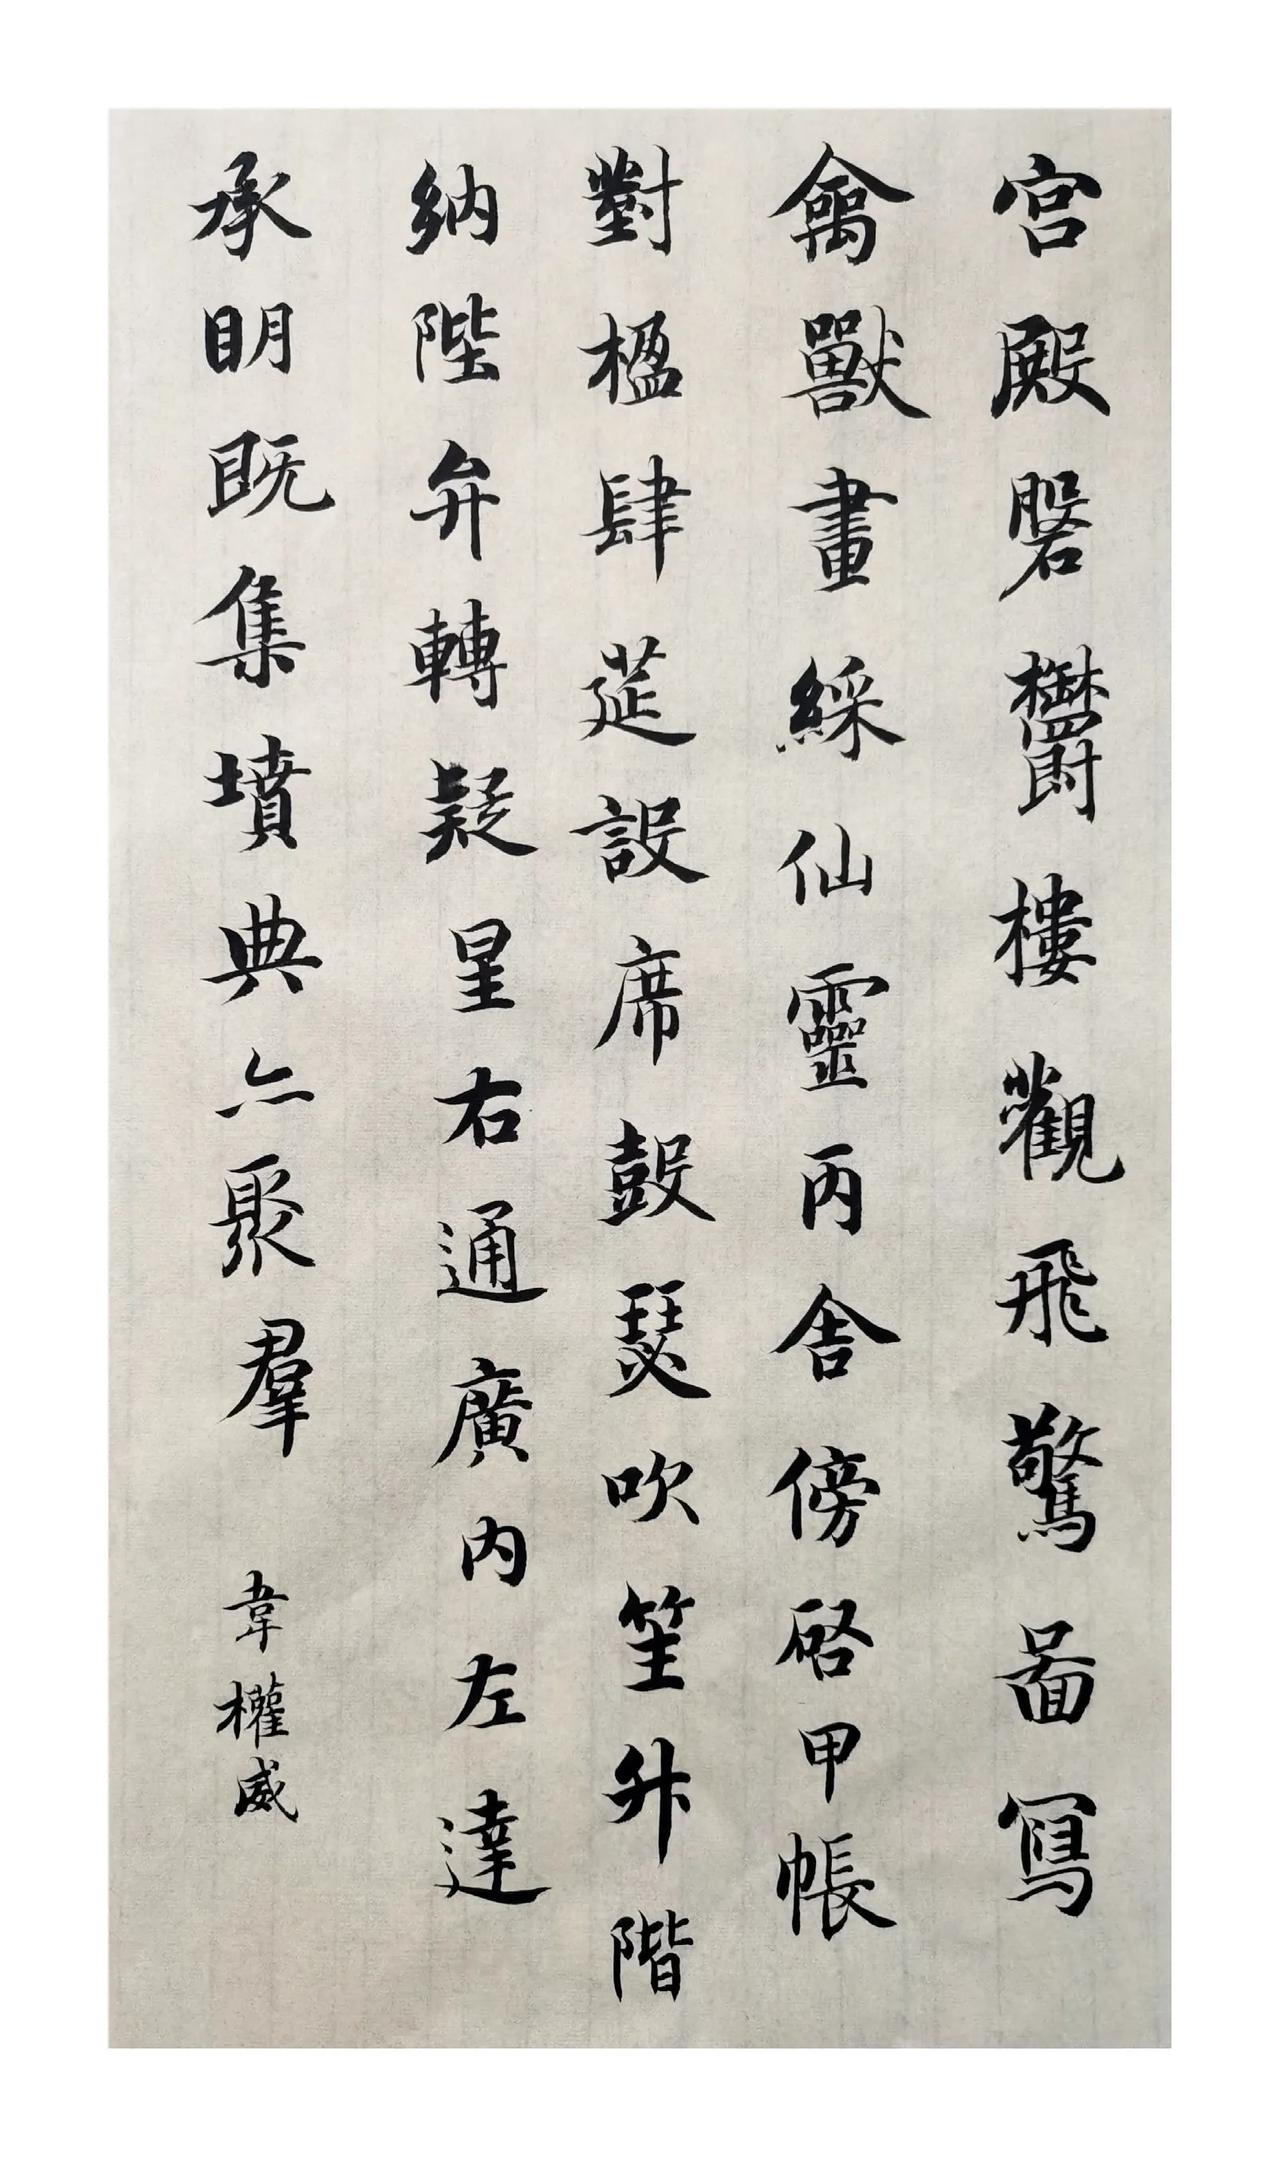 宮殿磐鬱樓觀飛驚啚寫
禽獸畫綵仙靈丙舍傍啓甲帳
對楹肆莚設席鼓瑟吹笙升階
納陛弁轉疑星右通廣内左達
承明既集墳典亦聚羣
韋權威